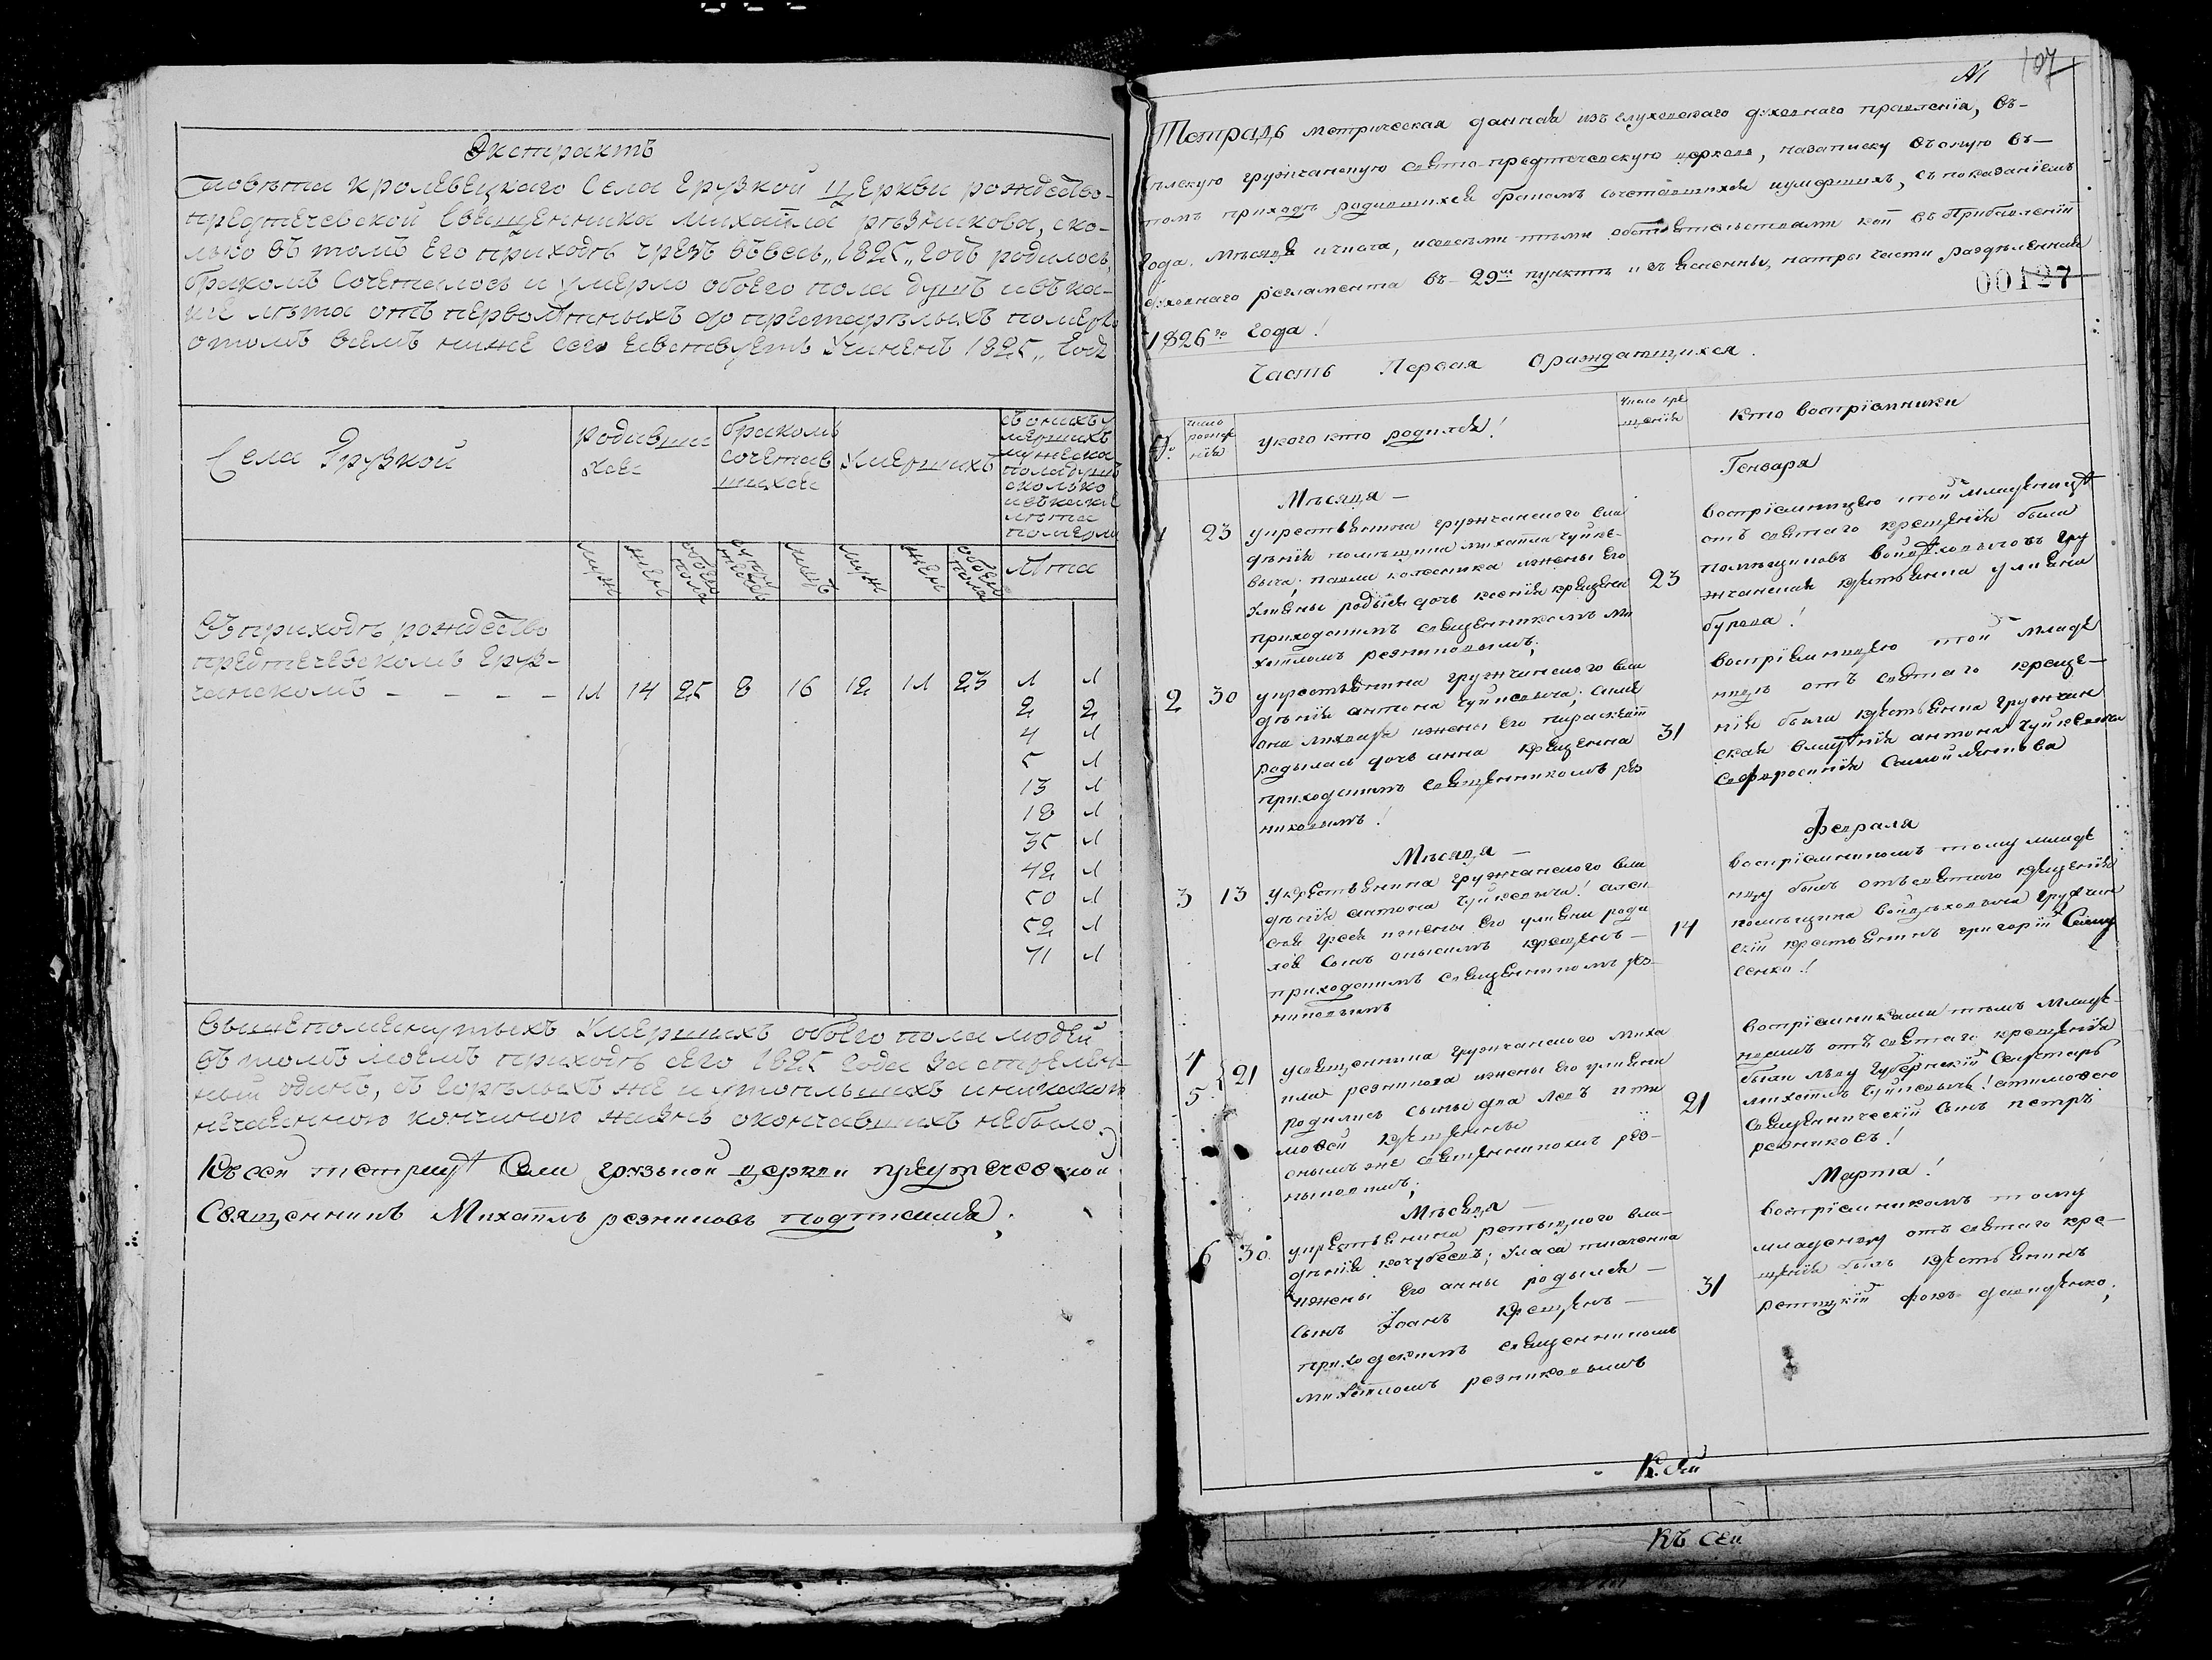 Экстрактъ
Повѣта кролевецкаго Села Грузкой Церкви рождество-
предтечевской Священника михаила рѣзникова, ско-
лько въ томъ Его приходѣ чрезъ ввесь „1825„ Годъ родилось,
бракомъ Сочеталось и Умерло обоего пола душъ и въ ка-
кие лѣта отъ перволѣтныхъ до престарѣлыхъ померло
о томъ всемъ ниже сего Учиненъ 1825„ Года
Села Грузкой
родивши
хся
бракомъ
сочетав
шихся
Умершихъ
съ онихъ у
мершихъ
мужеска
пола душъ
сколько
и въ какие
лѣта
померли
муж
жен
обоего
пола
лицъ
муж
жен
обоего
пола
Лѣта
Въ приходѣ рождество
предтечевскомъ Груз-
чанскомъ - - - -
11 14 25 8 16 12 11 23 1 1
2 2
4 1
5 1
13 1
18 1
35 1
42 1
50 1
52 1
71 1
Вышепоменутыхъ Умершихъ обоего пола людей
въ томъ моемъ приходѣ сего 1825 Года Застрелен-
ный одинъ, сгорѣлыхъ же и утопльшихъ и никакою
нечаенною кончиною жизнь окончавшихъ небыло.
Къ сей тетради Села грузкой церкви предтечевской
Священникъ Михаилъ резниковъ подписался;
№1 107
Тетрадь метрическая данная изъ глуховскаго духовнаго правленія, въ-
сельскую грузчанскую свято-предтечевскую церковь, назаписку въ оную въ-
томъ приходѣ родившихся бракомъ сочетавшихся и умершихъ, съ показаніемъ
Года, Мѣсяця и числа, и совсѣми тѣми обстоятельствами кои въ Прибавленіи
духовнаго регламента въ- 29мъ пунктѣ изъяснены, натри части раздѣленная
00127
1826го Года!
Часть Первая О раждающихся.
число
рожде
нія
укого кто родился!
число кре
щенія
кто воспріемники
Мѣсяца —
Генваря
1 23 укрестьянина грузчанского вла
дѣнія помѣщика михаила чуйке-
вича; павла колесника ижены Его
Улияны родылся дочь ксенія крещена
приходскимъ священникомъ ми
хаиломъ резниковымъ;
23
воспріемницею той младеницѣ
отъ святаго крещенія была
помѣщиковъ Войцѣховичовъ гру
зчанская крестьянка улияна
бурова!
2 30 укрестьянина грузчанского вла
дѣнія антона чуйкевича;
она лихвара ижены Его параскеви
родылась дочь анна крещенна
приходскимъ священникомъ рез
никовымъ!
31
воспріемницею той младе
ницѣ отъ святаго креще-
нія была крестьянка грузчан
ская владѣнія антона чуйкевича
евфросинія Самойленкова
Мѣсяца —
Февраля
3 13 Укрестьянина грузчанского вла
дѣнія антона чуйкевича!
ижены Его улияны роди
лся Сынъ онысимъ крещенъ —
приходскимъ священникомъ рез-
никовымъ
14
воспріемникомъ тому младе
нцу былъ отъ святаго крещенія
помѣщика войцѣховича грузчан
скій крестьянинъ григорій
сенко!
4
5 21 усвященника грузчанского миха
ила резникова ижены Его улияны
родились сыны два Левъ и ти
мофей крещенны
онымъже священникомъ рез-
никовымъ;
21
воспріемниками тѣмъ младе-
нцамъ отъ святаго крещенія
были льву Губернскій Секретарь
михаилъ чуйкевичъ! а тимофею
священническій Сынъ петръ
резниковъ!
Мѣсяца —
Марта!
6 30 укрестьянина ретыцкого вла-
дѣнія кочубеевъ; Уласа ткаченка
ижены Его анны родылся —
Сынъ Іоанъ крещенъ —
приходскимъ священникомъ
михаиломъ резниковымъ
31
воспріемникомъ тому
младенцу отъ святаго кре-
щенія былъ крестьянинъ
ретицкій фока давиденко;
К сей
Къ сей